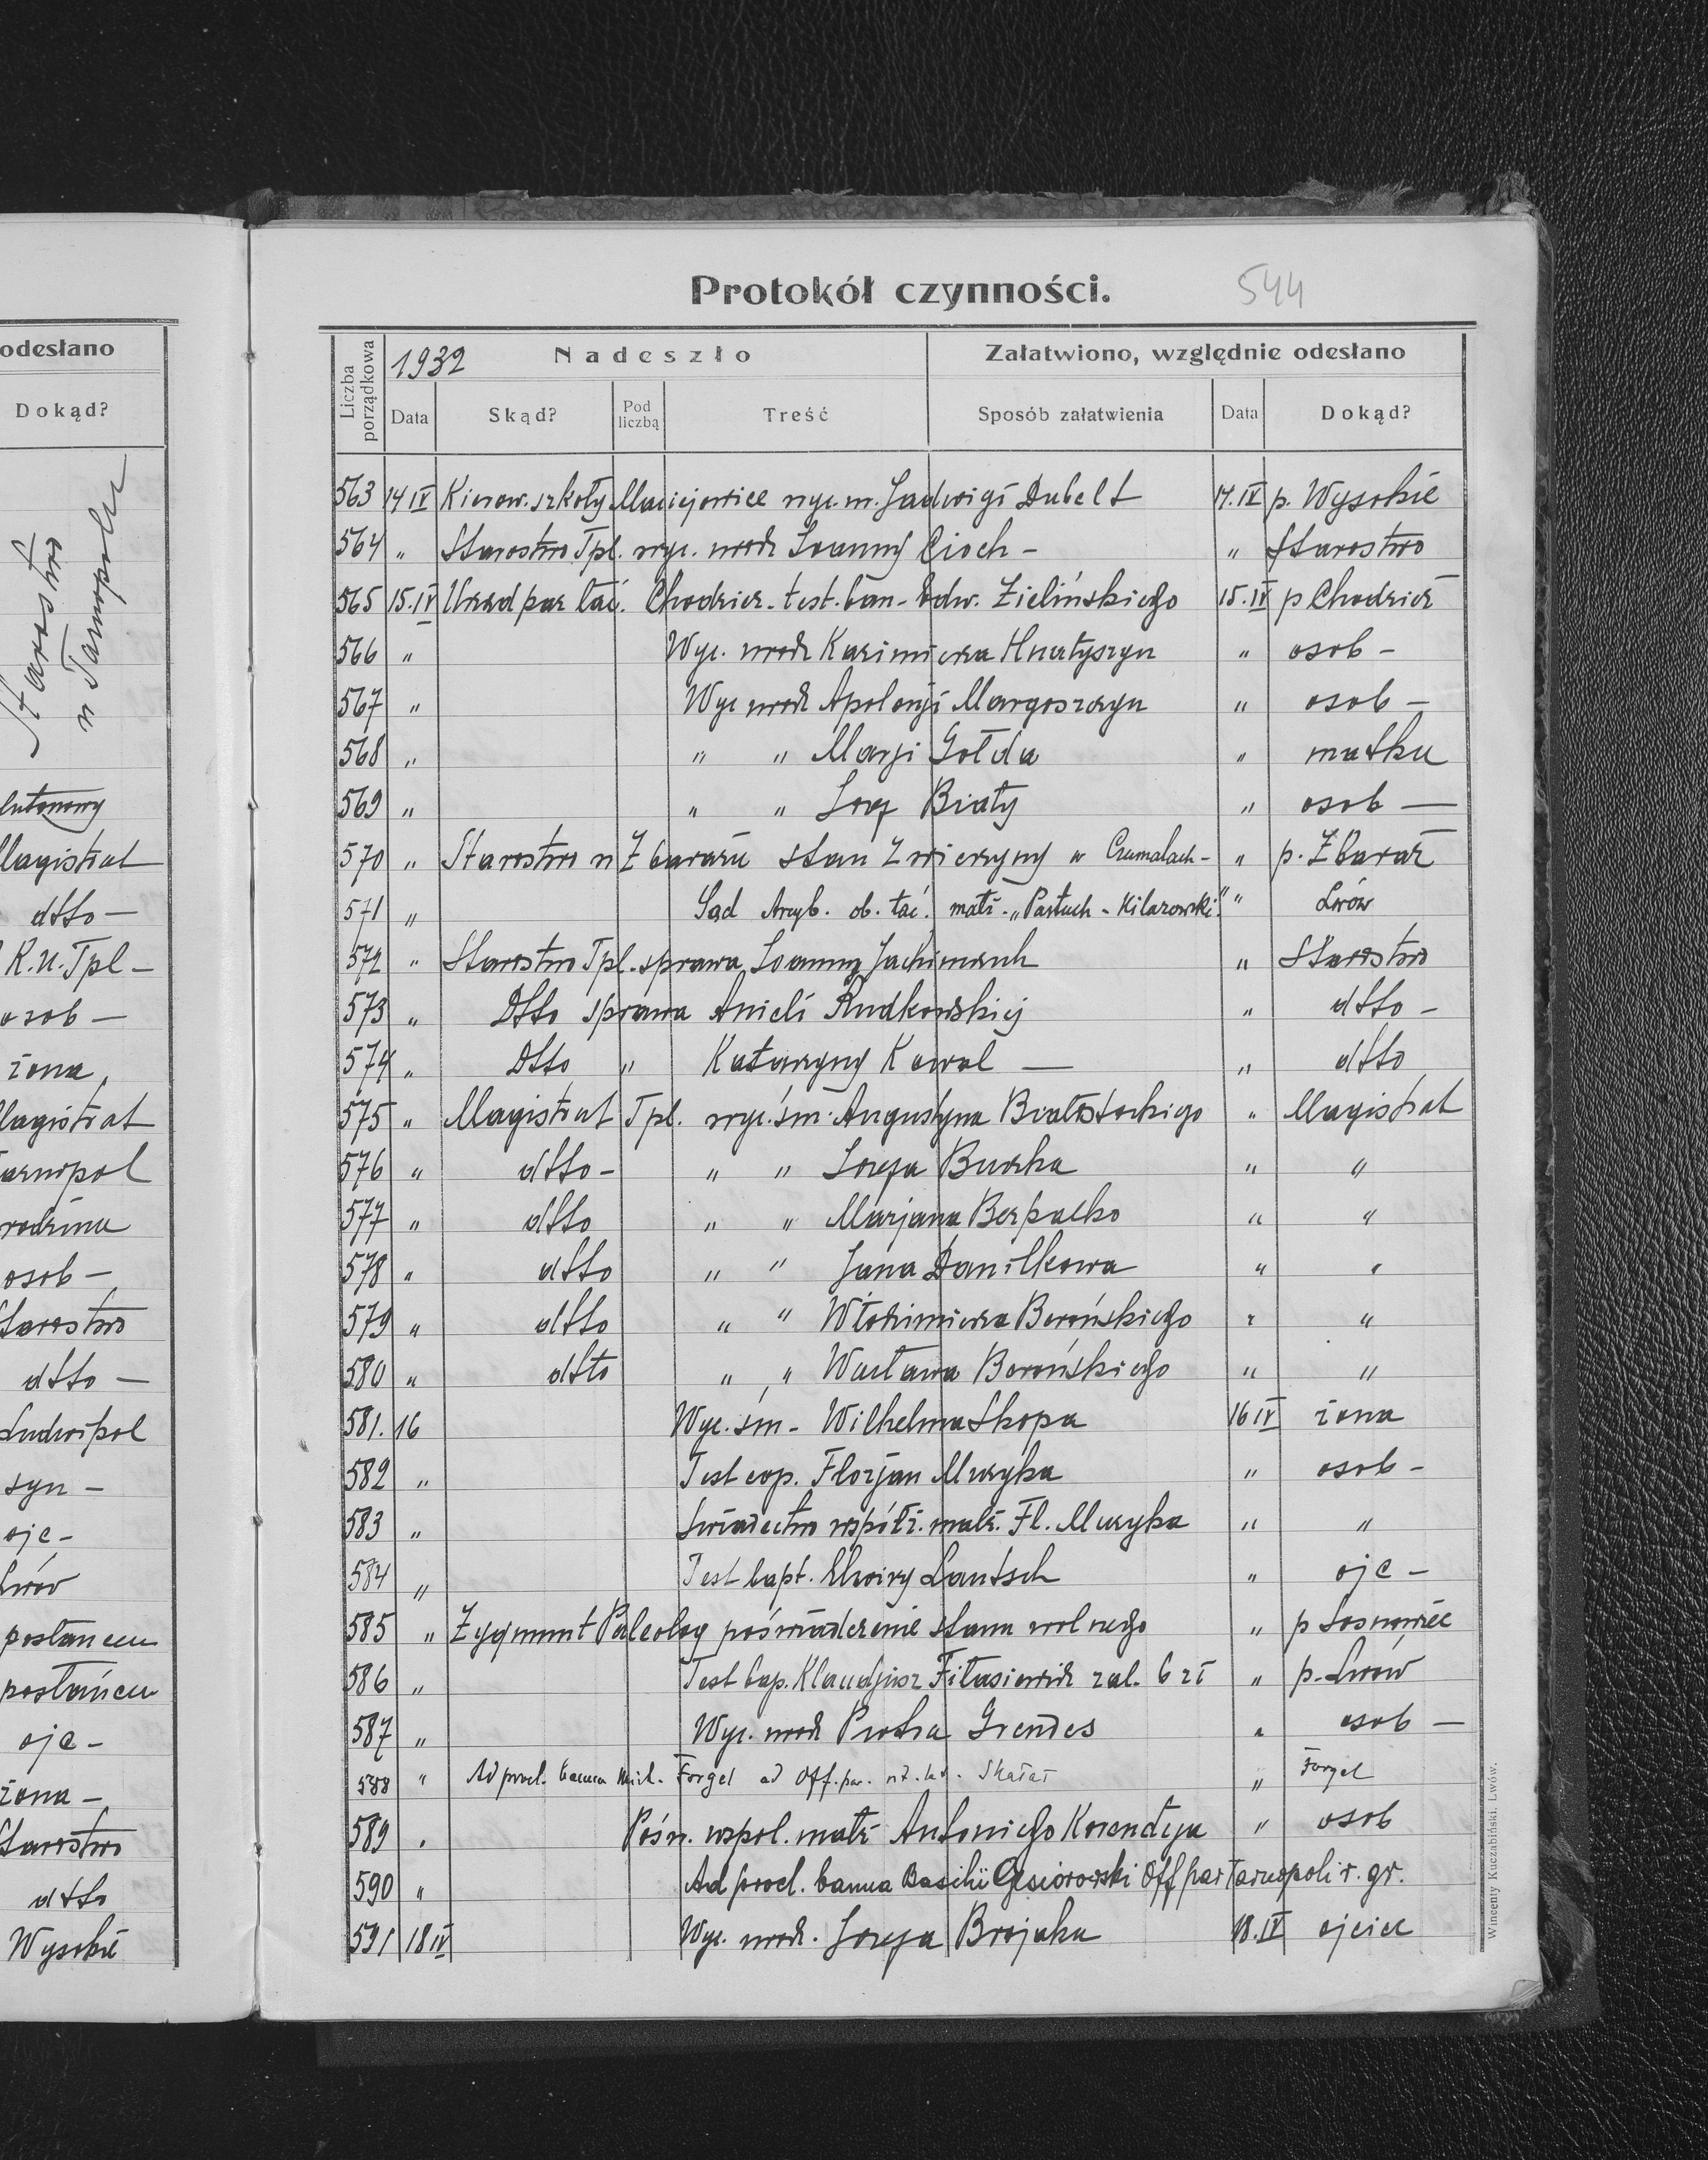 odesłano
Dokąd?
Starostwo
w Tarnopolu
Magistrat
dtto —
R.U. Tpl —
osob —
żona
Magistrat
Tarnopol
rodzina
osob —
Starostwo
dtto —
Ludwipol
syn —
ojc —
Lwów
posłańcem
posłańcem
ojc —
żona —
Starostwo
dtto
Wysokie
Protokół czynności. 544
Liczba porządkowa 1932 Nadeszło Załatwiono, względnie odesłano
Data Skąd? Pod liczbą Treść Sposób załatwienia Data Dokąd?
563 14 IV Kierow. szkoły Maciejowice wyc. m. Jadwigi Dubelt 14.IV p. Wysokie
564 " Starostwo Tpl. wyc. urodz Joanny Cioch - " Starostwo
565 15.IV Urząd par łać. Chodzież - test. ban - Edw. Zielińskiego 15.IV p Chodzież
566 " Wyc. urodz Kazimierza Hnatyszyn " osob -
567 " Wyc urodz Apolonji Margoszczyn " osob —
568 " " " Marji Gołda " matka
569 " " " Józef Biały " osob —
570 " Starostwo w Zbarażu stan Zwierzyny w Czumalach - " p. Zbaraż
571 " Sąd Arcyb. ob. łać. małż. - „Pastuch - Kilarowski" " Lwów
572 " Starostwo Tpl. sprawa Joanny Jachimczuk " Starostwo
573 " Dtto sprawa Anieli Rudkowskiej " dtto -
574 " Dtto " Katarzyny Kowal — " dtto
575 " Magistrat Tpl. wyc. śm. Augustyna Białostockiego " Magistrat
576 " dtto - " " Józefa Burka " "
577 " dtto " " Marjana Bezpalko " "
578 " dtto " " Jana Daniłkowa " "
579 " dtto " " Włodzimierza Berońskiego " "
580 " dtto " " Wacława Berońskiego " "
581. 16 Wyc. śm - Wilhelma Skopa 16 IV żona
582 " Test cop. Florjan Muzyka " osob -
583 " Świadectwo współż. małż. Fl. Muzyka " "
584 " Test bapt. Lantsch " ojc -
585 " Zygmunt Paleolog poświadczenie stanu wolnego " p Sosnowiec
586 " Test bap. Klaudjusz Fitasiewicz zal. 6 zł " p. Lwów
587 " Wyc. urodz Piotra Grendes " osob —
588 " Ad procl. banna Mich. Forgel ad Off. par. rt. lat. Skałat " Forgel
589 " Pośw. wspol. małż Antoniego Korendyja " osob
590 " Ad procl. banna Basilii Gęsiorowski Off par Tarnopoli r. gr.
591 18 IV Wyc. urodz. Józefa Brojaka 18.IV ojciec
Wincenty Kuczabiński. Lwów.